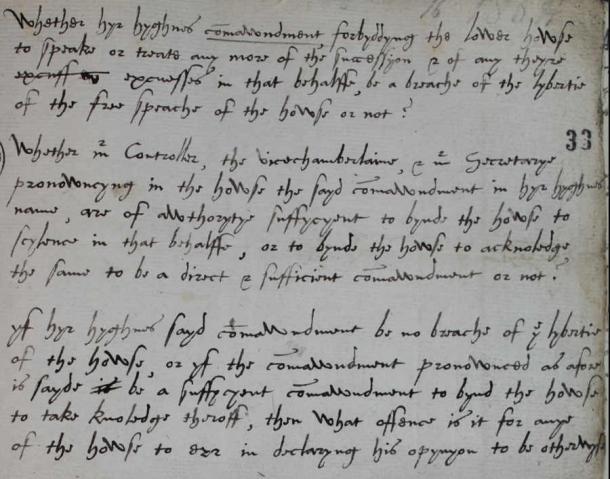 Whether hyr hyghnes com̄awndment forbyddyng the lower howse
to speake or treate any more of the successyon & of any theyre
excuss excusses in that behallffe, be a breache of the lybertie
of the free speache of the howse or not?
33
Whether mr Controller, the vicechamberlaine, & mr Secretarye
pronowncyng in the howse the sayd com̄awndment in hyr hyghnes
name, are of awthorytye suffycyent to bynde the howse to
scylence in that behallffe, or to bynde the howse to acknoledge
the same to be a direct & sufficient com̄awndment or not?
yf hyr hyghnes sayd com̄awndment be no breache of ye lybertie
of the howse, or yf the com̄awndment pronownced as afore
is sayde be a suffycyent com̄awndment to bynd the howse
to take knoledge theroff, then what offence is it for anye
of the howse to err in declaryng his opynyon to be otherwyse